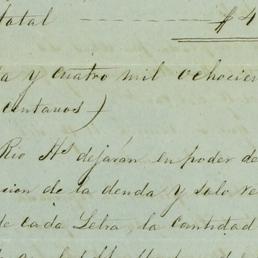 total $4
a y cuatro mil ochocien
centavos)
Rio Hs dejarán en poder de
cion de la deuda y solo re
de cada Letra la cantidad